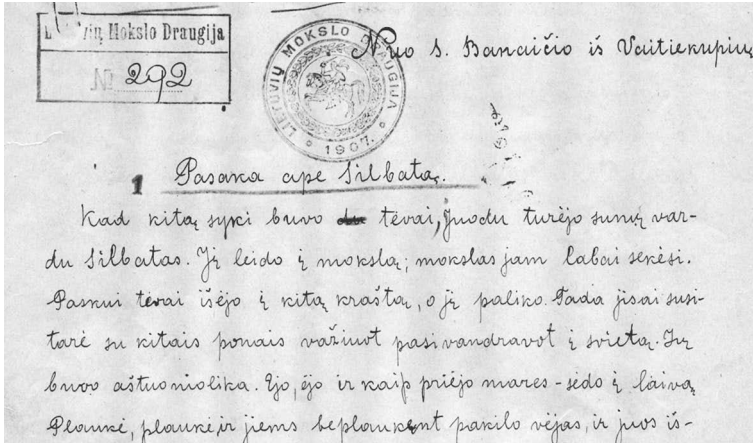 Lietuvių Mokslo Draugija
№ 292
LIETUVIŲ MOKSLO DRAUGIJA
1907.
Nuo S. Banaičio iš Vaitiekupių
1 Pasaka ape Silbatą.
Kad kitą sykį buvo tėvai, Juodu turėjo sunų var-
du Silbatas. Jį leido į mokslą; mokslas jam labai sekėsi.
Paskui tėvai išėjo į kitą kraštą, o jį paliko. Tada jisai susi-
tarė su kitais ponais važiuot pasivandravot į svietą. Jų
buvo aštuoniolika. Ejo, ėjo ir kaip priėjo mares - sėdo į laivą
Plaukė, plaukė, ir jiems beplaukent pakilo vėjas, ir juos iš-